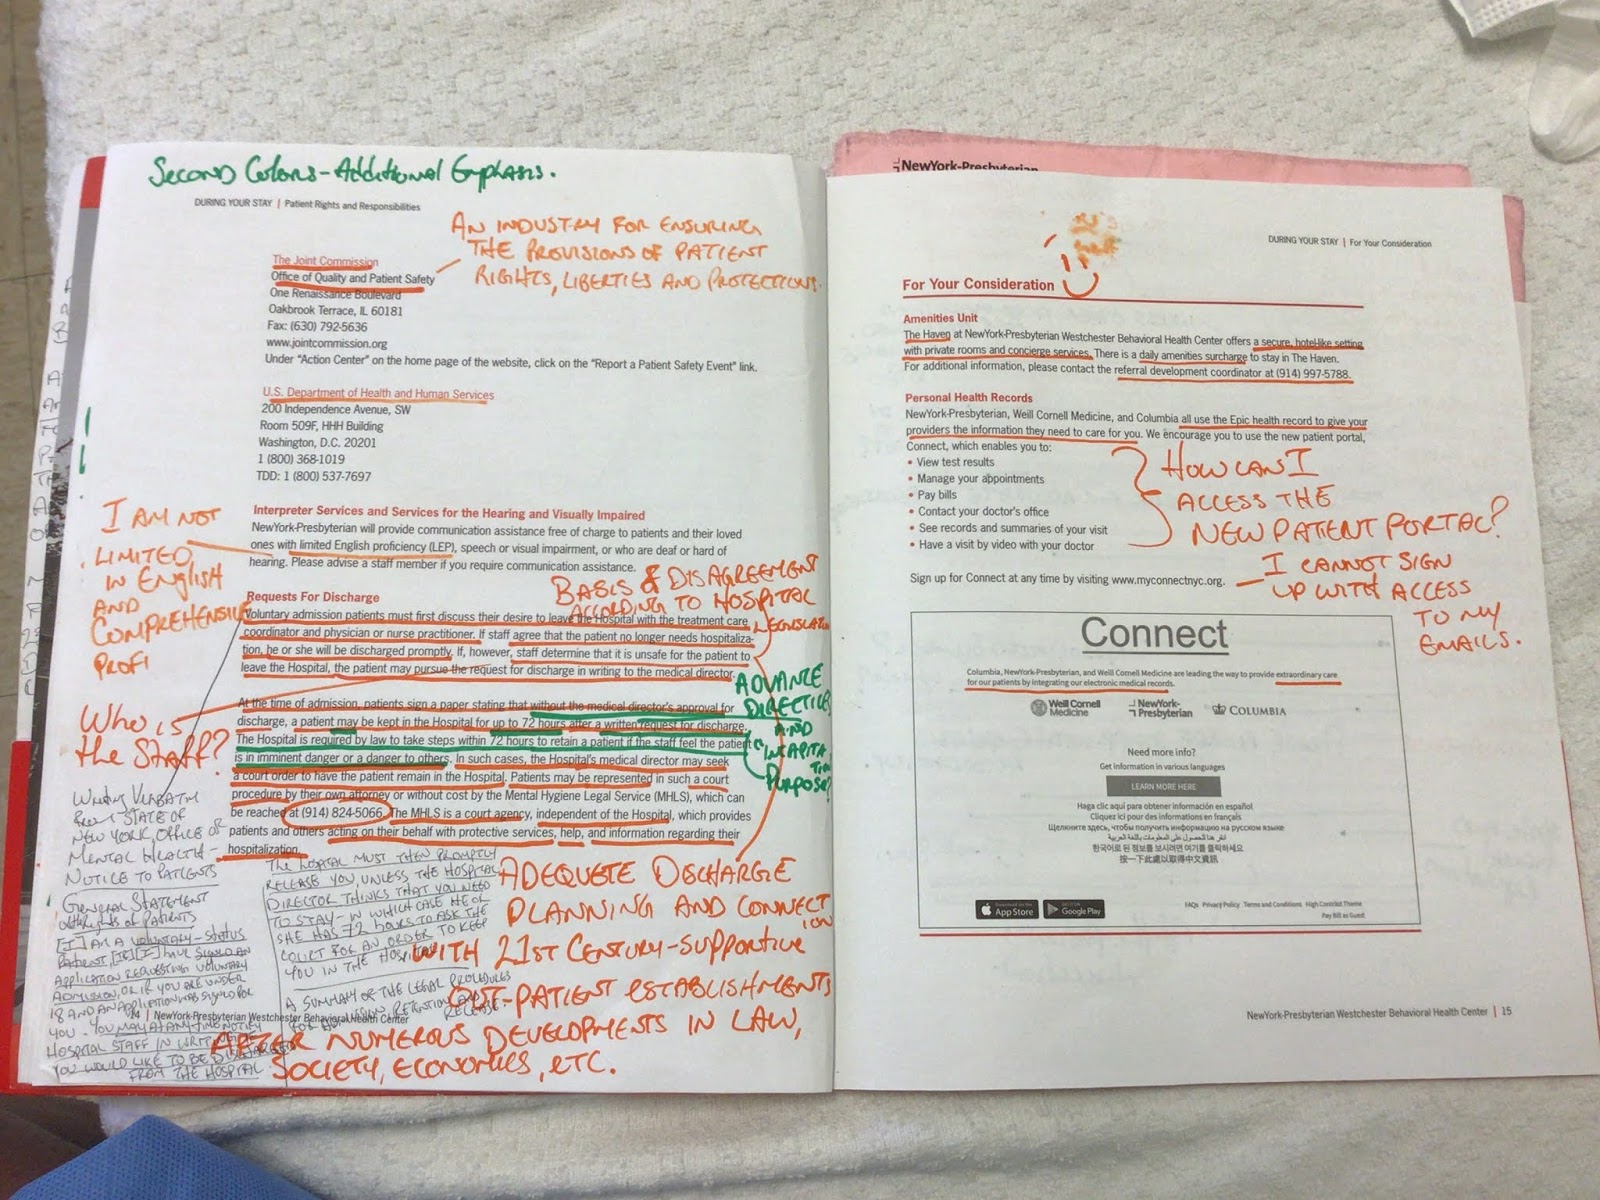 Second Colors - Additional Emphasis.
DURING YOUR STAY | Patient Rights and Responsibilities
AN INDUSTRY FOR ENSURING
THE PROVISIONS OF PATIENT
RIGHTS, LIBERTIES AND PROTECTIONS.
The Joint Commission
Office of Quality and Patient Safety
One Renaissance Boulevard
Oakbrook Terrace, IL 60181
Fax: (630) 792-5636
www.jointcommission.org
Under “Action Center” on the home page of the website, click on the “Report a Patient Safety Event” link.
U.S. Department of Health and Human Services
200 Independence Avenue, SW
Room 509F, HHH Building
Washington, D.C. 20201
1 (800) 368-1019
TDD: 1 (800) 537-7697
I AM NOT
LIMITED
IN ENGLISH
AND
COMPREHENSIVE
PROFI
Interpreter Services and Services for the Hearing and Visually Impaired
NewYork-Presbyterian will provide communication assistance free of charge to patients and their loved
ones with limited English proficiency (LEP), speech or visual impairment, or who are deaf or hard of
hearing. Please advise a staff member if you require communication assistance.
BASIS & DISAGREEMENT
ACCORDING TO HOSPITAL
LEGISLATION
Requests For Discharge
Voluntary admission patients must first discuss their desire to leave the Hospital with the treatment care
coordinator and physician or nurse practitioner. If staff agree that the patient no longer needs hospitaliza-
tion, he or she will be discharged promptly. If, however, staff determine that it is unsafe for the patient to
leave the Hospital, the patient may pursue the request for discharge in writing to the medical director.
ADVANCE
DIRECTIVES
AND
PURPOSE?
WHO IS
the STAFF?
At the time of admission, patients sign a paper stating that without the medical director's approval for
discharge, a patient may be kept in the Hospital for up to 72 hours after a written request for discharge.
The Hospital is required by law to take steps within 72 hours to retain a patient if the staff feel the patient
is in imminent danger or a danger to others. In such cases, the Hospital's medical director may seek
a court order to have the patient remain in the Hospital. Patients may be represented in such a court
procedure by their own attorney or without cost by the Mental Hygiene Legal Service (MHLS), which can
be reached at (914) 824-5066. The MHLS is a court agency, independent of the Hospital, which provides
patients and others acting on their behalf with protective services, help, and information regarding their
hospitalization.
WRITING VERBATIM
from STATE OF
NEW YORK, OFFICE OF
MENTAL HEALTH -
NOTICE TO PATIENTS
GENERAL STATEMENT
RIGHTS OF PATIENTS
[I] AM A VOLUNTARY-STATUS
PATIENT, [I] HAVE SIGNED AN
APPLICATION REQUESTING VOLUNTARY
ADMISSION, OR IF YOU ARE UNDER
18 AND AN APPLICATION WAS SIGNED FOR
YOU. YOU MAY AT ANY TIME NOTIFY
HOSPITAL STAFF IN WRITING
YOU WOULD LIKE TO BE DISCHARGED
FROM THE HOSPITAL
THE HOSPITAL MUST THEN PROMPTLY
RELEASE YOU, UNLESS THE HOSPITAL
DIRECTOR THINKS THAT YOU NEED
TO STAY - IN WHICH CASE HE OR
SHE HAS 72 HOURS TO ASK THE
COURT FOR AN ORDER TO KEEP
YOU IN THE HOSPITAL
A SUMMARY OF THE LEGAL PROCEDURES
FOR ADMISSION, RETENTION AND
RELEASE.
ADEQUETE DISCHARGE
PLANNING AND CONNECTION
WITH 21ST CENTURY-SUPPORTIVE
OUT-PATIENT ESTABLISHMENTS
AFTER NUMEROUS DEVELOPMENTS IN LAW,
SOCIETY, ECONOMICS, ETC.
14 | NewYork-Presbyterian Westchester Behavioral Health Center
NewYork-Presbyterian
DURING YOUR STAY | For Your Consideration
For Your Consideration
Amenities Unit
The Haven at NewYork-Presbyterian Westchester Behavioral Health Center offers a secure, hotel-like setting
with private rooms and concierge services. There is a daily amenities surcharge to stay in The Haven.
For additional information, please contact the referral development coordinator at (914) 997-5788.
Personal Health Records
NewYork-Presbyterian, Weill Cornell Medicine, and Columbia all use the Epic health record to give your
providers the information they need to care for you. We encourage you to use the new patient portal,
Connect, which enables you to:
• View test results
• Manage your appointments
• Pay bills
• Contact your doctor's office
• See records and summaries of your visit
• Have a visit by video with your doctor
HOW CAN I
ACCESS THE
NEW PATIENT PORTAL?
Sign up for Connect at any time by visiting www.myconnectnyc.org.
I CANNOT SIGN
UP WITH ACCESS
TO MY
EMAILS.
Connect
Columbia, NewYork-Presbyterian, and Weill Cornell Medicine are leading the way to provide extraordinary care
for our patients by integrating our electronic medical records.
Weill Cornell
Medicine
NewYork-
Presbyterian
COLUMBIA
Need more info?
Get information in various languages
LEARN MORE HERE
Haga clic aquí para obtener información en español
Cliquez ici pour des informations en français
Щелкните здесь, чтобы получить информацию на русском языке
انقر هنا للحصول على المعلومات باللغة العربية
한국어로 된 정보를 보시려면 여기를 클릭하세요
按一下此處以取得中文資訊
App Store
Google Play
FAQs Privacy Policy Terms and Conditions High Contrast Theme
Pay Bill as Guest
NewYork-Presbyterian Westchester Behavioral Health Center | 15